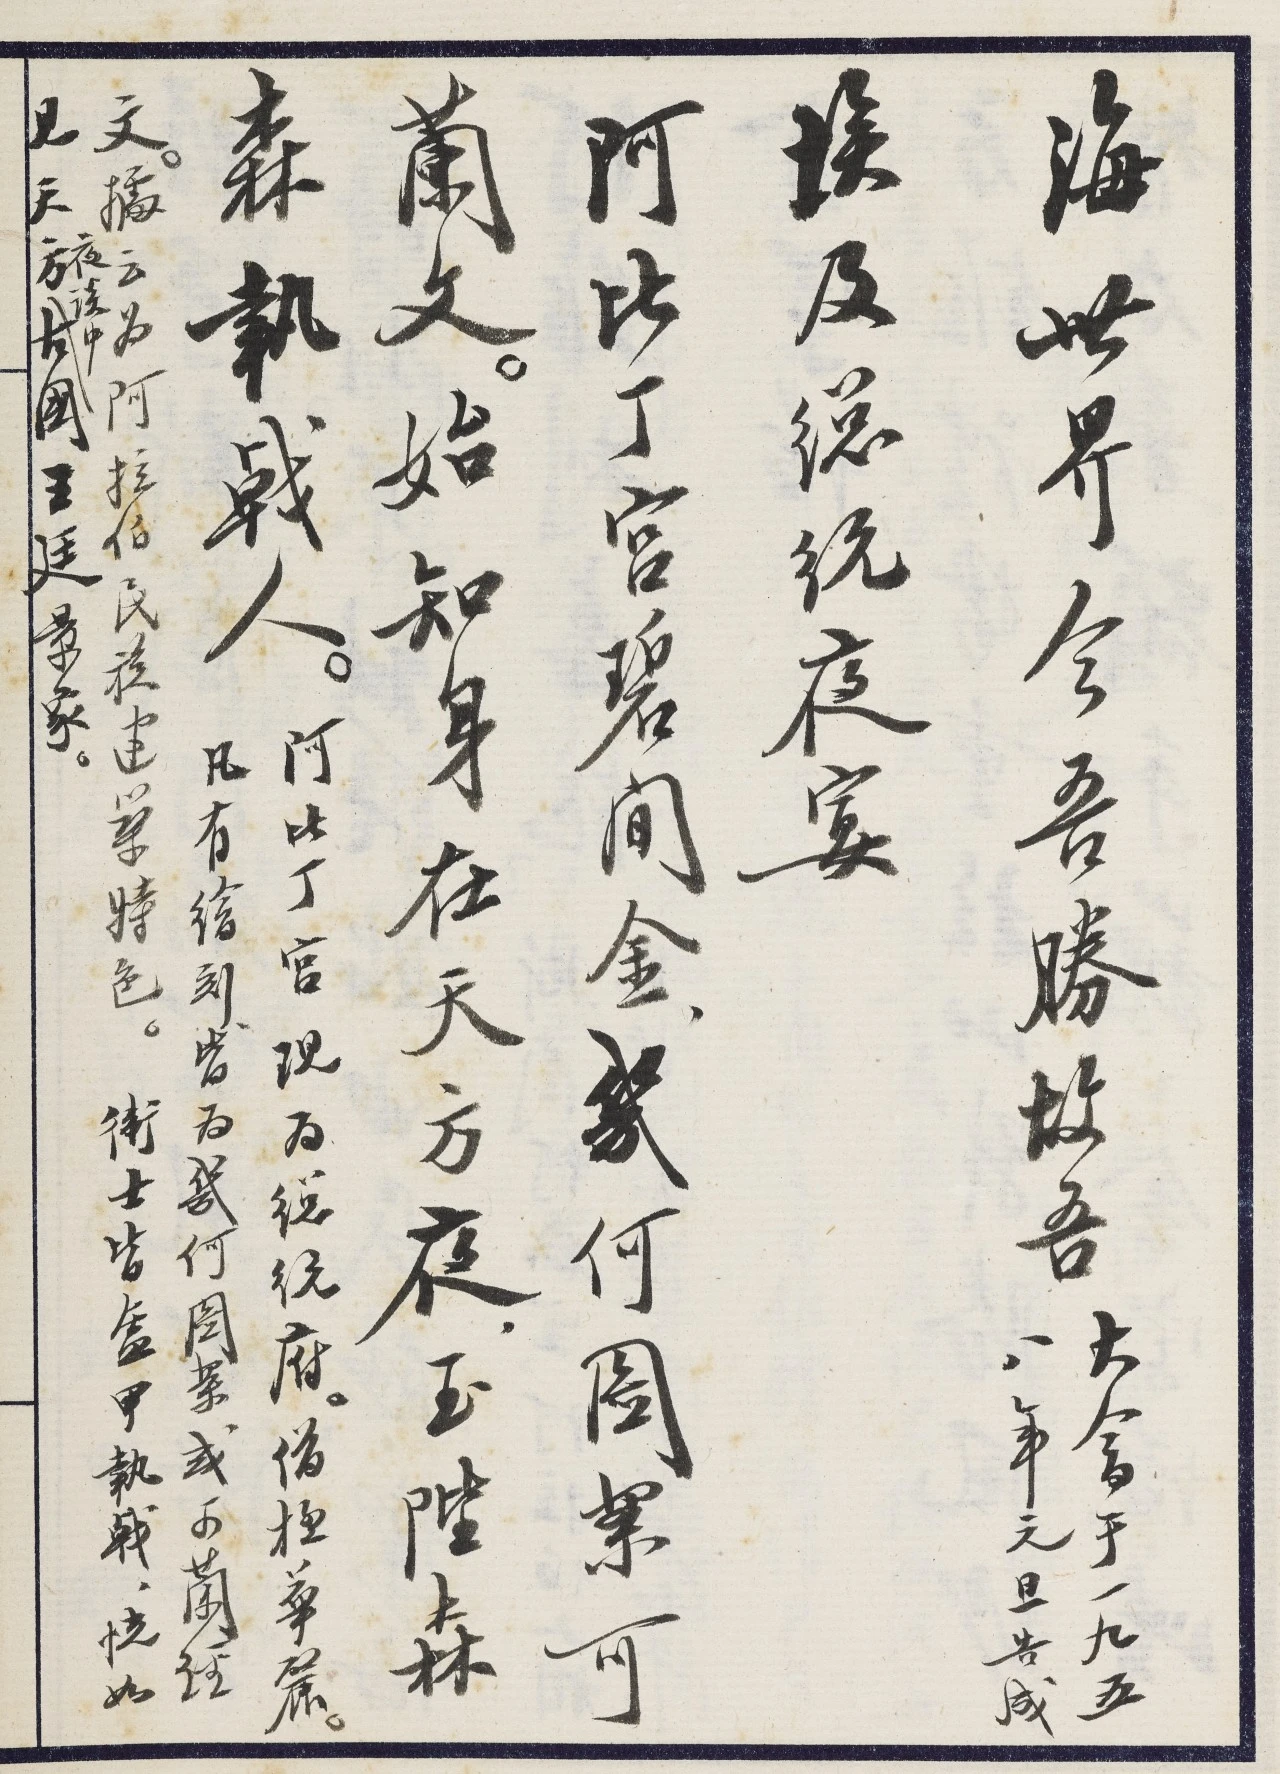 海世界今吾勝故吾 大會于一九五
八年元旦告成
埃及總統夜宴
阿比丁宮碧间金、幾何圖案可
蘭文。始知身在天方夜、玉陛森
森執戟人。阿比丁宮現为總統府。備極華麗。
凡有繪刻皆为幾何图案或可蘭經
文。據云为阿拉伯民族建築特色。衛士皆盔甲執戟、恍如
見天方夜談中古國王廷景象。